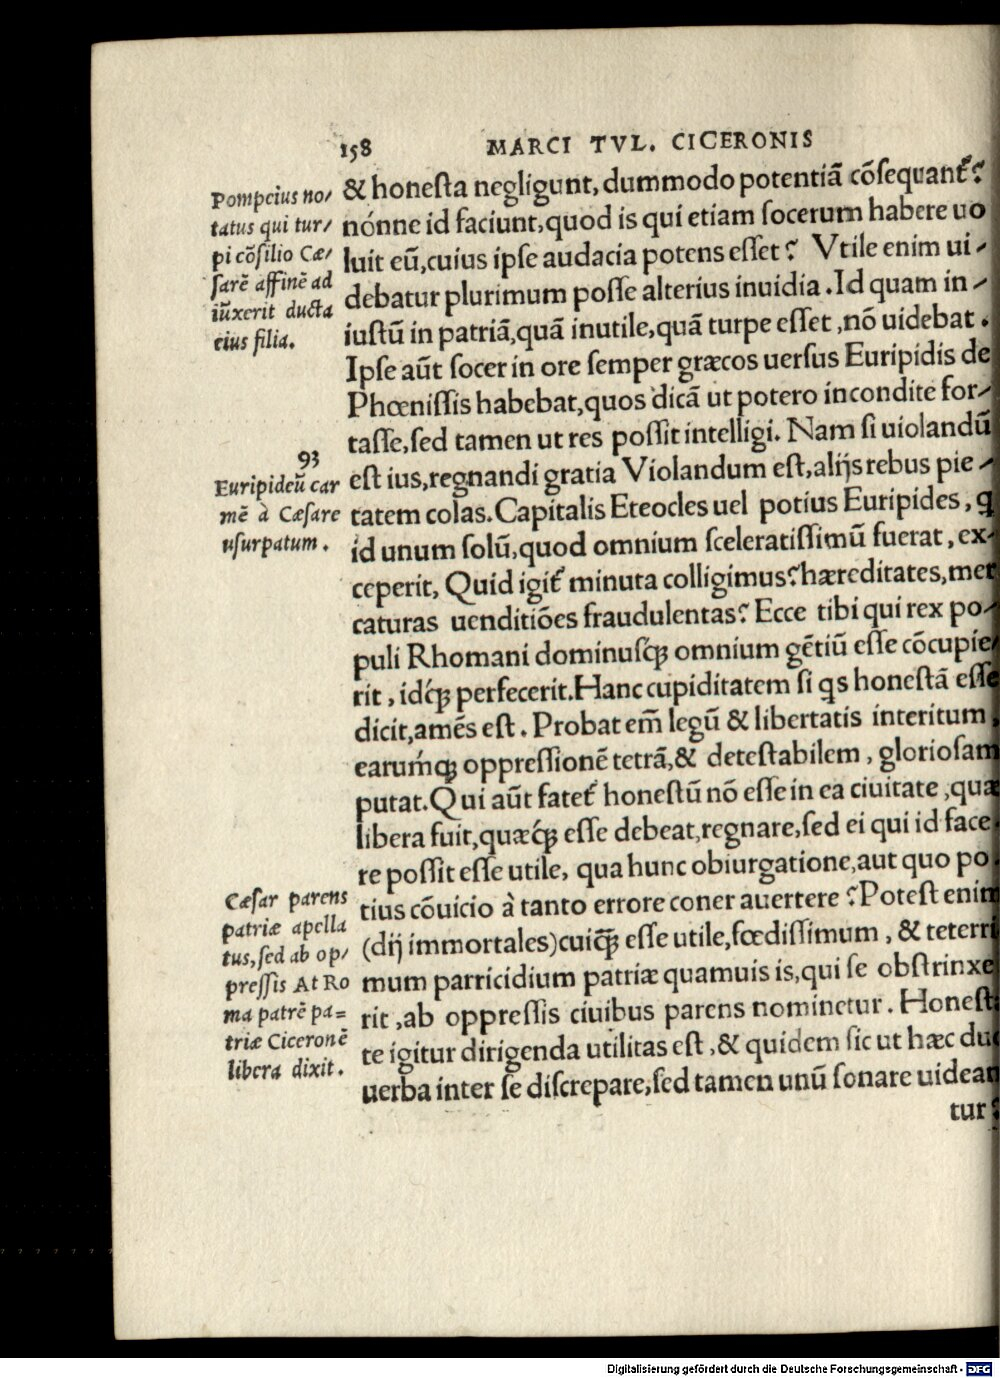 158 MARCI TVL. CICERONIS
Pompeius no/
tatus qui tur/
pi cõſilio Cæ/
ſarẽ affinẽ ad
iũxerit ducta
eius filia.
& honeſta negligunt, dummodo potentiã cõſequant᷑?
nónne id faciunt,quod is qui etiam ſocerum habere uo
luit eũ,cuius ipſe audacia potens eſſet? Vtile enim ui/
debatur plurimum poſſe alterius inuidia.Id quam in/
iuſtũ in patriã,quã inutile,quã turpe eſſet,nõ uidebat.
Ipſe aũt ſocer in ore ſemper græcos uerſus Euripidis de
Phœniſſis habebat,quos dicã ut potero incondite for/
taſſe,ſed tamen ut res poſſit intelligi. Nam ſi uiolandũ
93
Euripideũ car
mẽ à Cæſare
uſurpatum.
eſt ius,regnandi gratia Violandum eſt,alijs rebus pie/
tatem colas.Capitalis Eteocles uel potius Euripides, q
id unum ſolũ,quod omnium ſceleratiſſimũ fuerat, ex/
ceperit, Quid igit᷑ minuta colligimus?hæreditates,mer
caturas uenditiões fraudulentas? Ecce tibi qui rex po/
puli Rhomani dominuſq́; omnium gẽtiũ eſſe cõcupie/
rit, idq́; perfecerit.Hanc cupiditatem ſi qs honeſtã eſſe
dicit,amẽs eſt. Probat em̃ legũ & libertatis interitum,
earumq́; oppreſſionẽ tetrã,& deteſtabilem, glorioſam
putat.Qui aũt fatet᷑ honeſtũ nõ eſſe in ea ciuitate,quæ
libera fuit,quæq́; eſſe debeat,regnare,ſed ei qui id face
re poſſit eſſe utile, qua hunc obiurgatione,aut quo po
Cæſar parens
patriæ apella
tus,ſed ab op/
preſſis At Ro
ma patrẽ pa=
triæ Ciceronẽ
libera dixit.
tius cõuicio à tanto errore coner auertere?Poteſt enim
(dij immortales)cuiq̃; eſſe utile,fœdiſſimum, & teterri
mum parricidium patriæ quamuis is,qui ſe obſtrinxe
rit,ab oppreſſis ciuibus parens nominetur. Honeſta
te igitur dirigenda utilitas eſt,& quidem ſic ut hæc duo
uerba inter ſe diſcrepare,ſed tamen unũ ſonare uidean
tur:
Digitalisierung gefördert durch die Deutsche Forschungsgemeinschaft - DFG